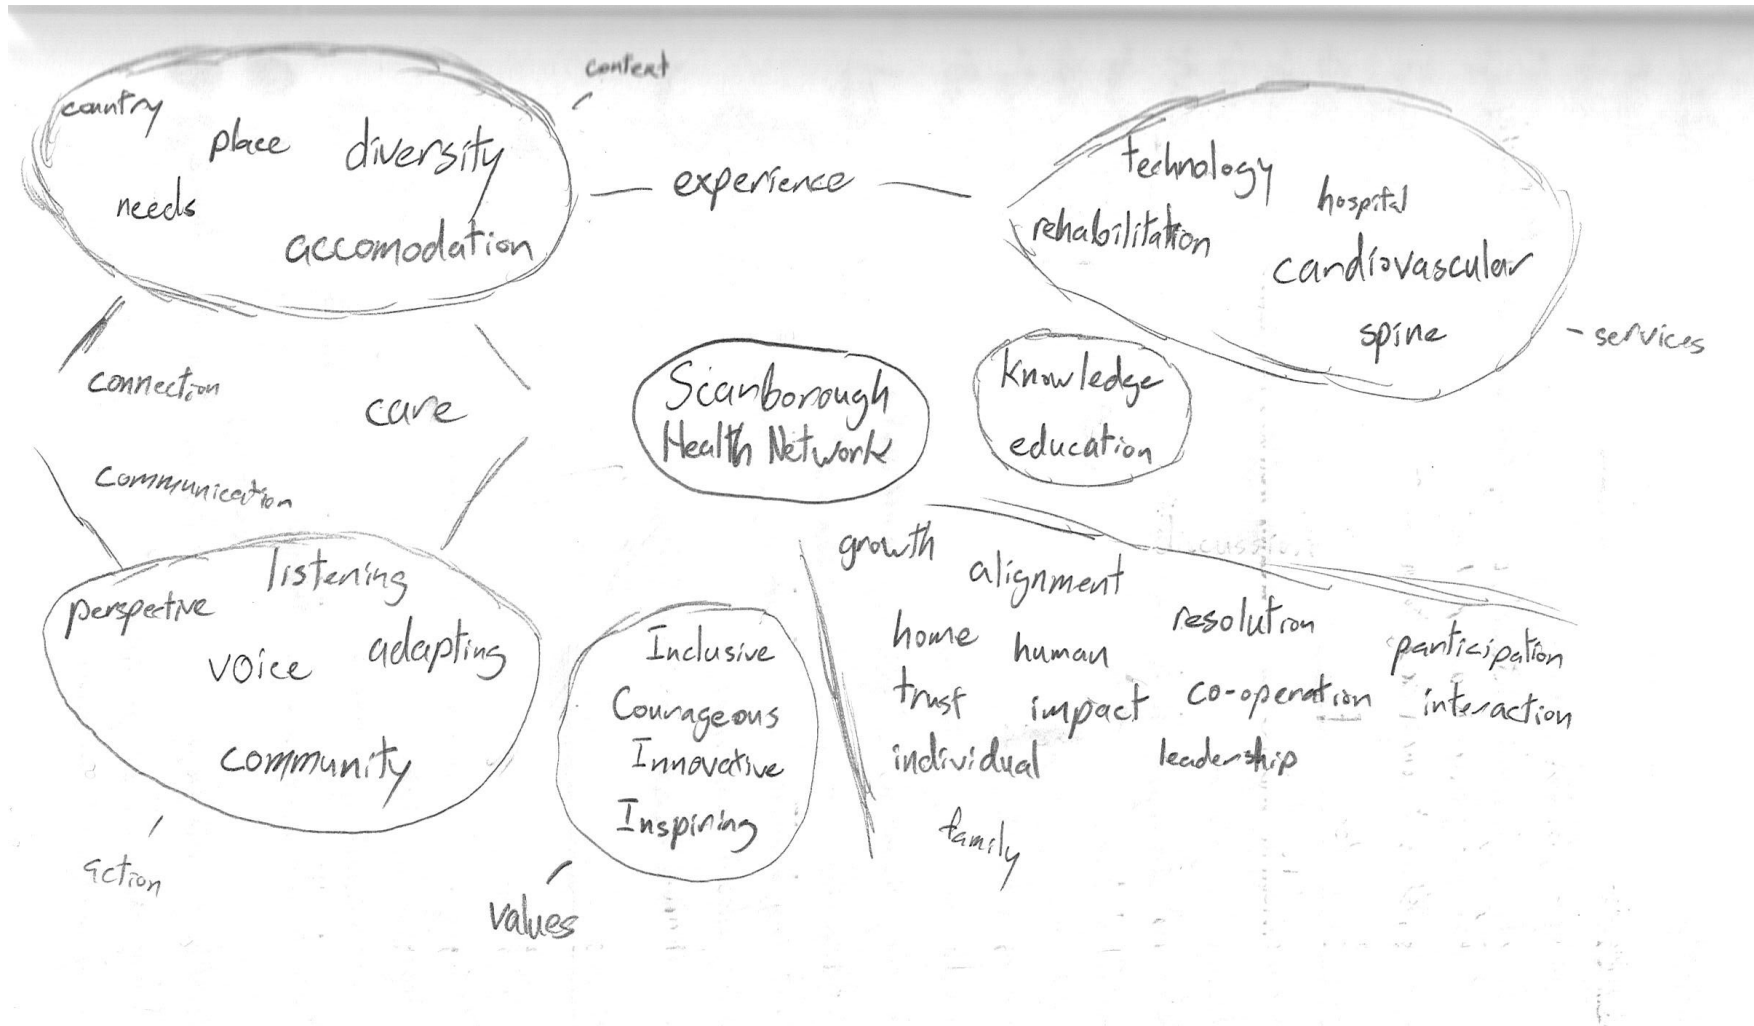 context
country
place
diversity
needs
accomodation
experience
technology
hospital
rehabilitation
cardiovascular
spine
services
connection
care
communication
Scarborough
Health Network
Knowledge
education
perspective
listening
voice
adapting
community
action
Inclusive
Courageous
Innovative
Inspiring
values
growth
alignment
resolution
participation
home
human
trust
impact
co-operation
interaction
individual
leadership
family